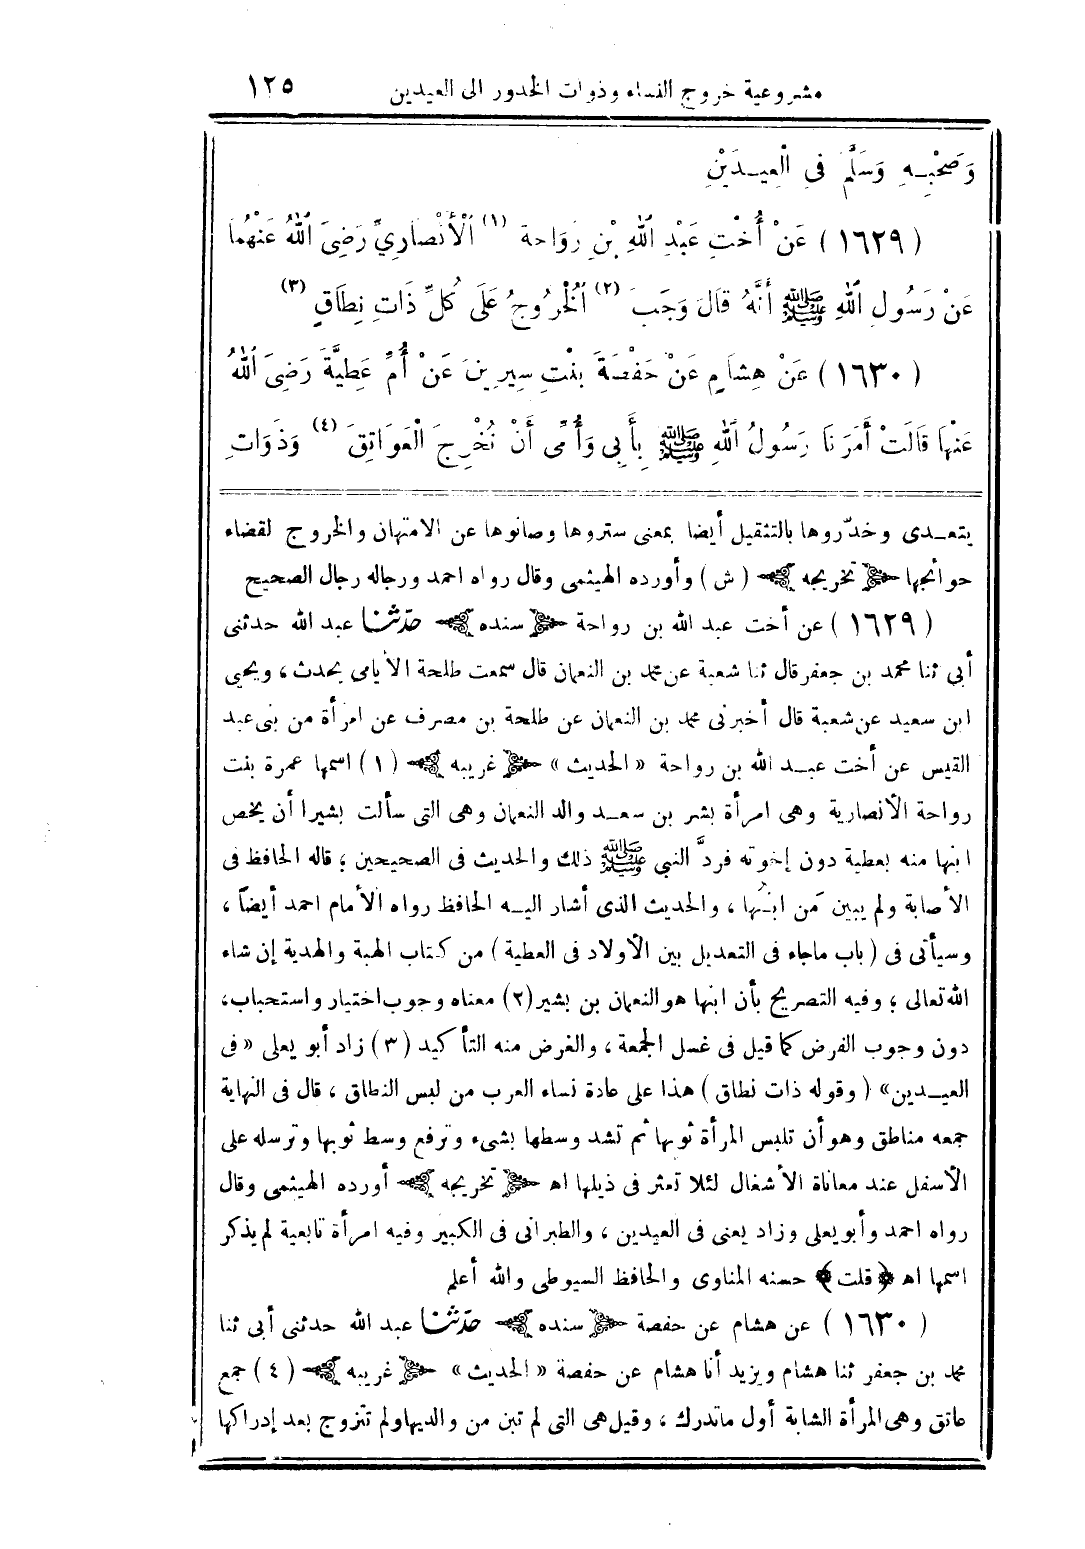 مشروعية خروج النساء وذوات الخدور الى العيدين ١٢٥
وَصَحْبِهِ وَسَلَّمَ فِى الْعِيدَيْنِ
(١٦٢٩) عَنْ أُخْتِ عَبْدِ اللهِ بْنِ رَوَاحة (١) الْأَنْصَارِيِّ رَضِىَ اللهُ عَنْهُمَا
عَنْ رَسُولِ اللهِ ﷺ أَنَّهُ قَالَ وَجَبَ (٢) الْخُرُوجُ عَلَى كُلِّ ذَاتِ نِطَاقٍ (٣)
(١٦٣٠) عَنْ هِشَامٍ عَنْ حَفْصَةَ بِنْتِ سِيرِينَ عَنْ أُمِّ عَطِيَّةَ رَضِىَ اللهُ
عَنْهَا قَالَتْ أَمَرَنَا رَسُولُ اللهِ ﷺ بِأَبِى وَأُمِّى أَنْ نُخْرِجَ الْعَوَاتِقَ (٤) وَذَوَاتِ
يتعدى وخدّروها بالتثقيل أيضا بمعنى ستروها وصانوها عن الامتهان والخروج لقضاء
حوائجها ﴿تخريجه﴾ (ش) وأورده الهيثمى وقال رواه احمد ورجاله رجال الصحيح
(١٦٢٩) عن أخت عبد الله بن رواحة ﴿سنده﴾ حدّثنا عبد الله حدثنى
أبى ثنا محمد بن جعفر قال ثنا شعبة عن محمد بن النعمان قال سمعت طلحة الأيامى يحدث، ويحيى
ابن سعيد عن شعبة قال أخبرنى محمد بن النعمان عن طلحة بن مصرف عن امرأة من بنى عبد
القيس عن أخت عبد الله بن رواحة «الحديث» ﴿غريبه﴾ (١) اسمها عمرة بنت
رواحة الأنصارية وهى امرأة بشر بن سعد والد النعمان وهى التى سألت بشيرا أن يخص
ابنها منه بعطية دون إخوته فردَّ النبى ﷺ ذلك والحديث فى الصحيحين؛ قاله الحافظ فى
الأصابة ولم يبين مَن ابنُها، والحديث الذى أشار اليه الحافظ رواه الأمام احمد أيضاً،
وسيأتى فى (باب ماجاء فى التعديل بين الأولاد فى العطية) من كتاب الهبة والهدية إن شاء
الله تعالى؛ وفيه التصريح بأن ابنها هو النعمان بن بشير (٢) معناه وجوب اختيار واستحباب،
دون وجوب الفرض كما قيل فى غسل الجمعة، والغرض منه التأكيد (٣) زاد أبو يعلى «فى
العيدين» (وقوله ذات نطاق) هذا على عادة نساء العرب من لبس النطاق، قال فى النهاية
جمعه مناطق وهو أن تلبس المرأة ثوبها ثم تشد وسطها بشىء وترفع وسط ثوبها وترسله على
الأسفل عند معاناة الأشغال لئلا تعثر فى ذيلها اه ﴿تخريجه﴾ أورده الهيثمى وقال
رواه احمد وأبو يعلى وزاد يعنى فى العيدين، والطبرانى فى الكبير وفيه امرأة تابعية لم يذكر
اسمها اه ﴿قلت﴾ حسنه المناوى والحافظ السيوطى والله أعلم
(١٦٣٠) عن هشام عن حفصة ﴿سنده﴾ حدّثنا عبد الله حدثنى أبى ثنا
محمد بن جعفر ثنا هشام ويزيد أنا هشام عن حفصة «الحديث» ﴿غريبه﴾ (٤) جمع
عاتق وهى المرأة الشابة أول ماتدرك، وقيل هى التى لم تبن من والديها ولم تتزوج بعد إدراكها